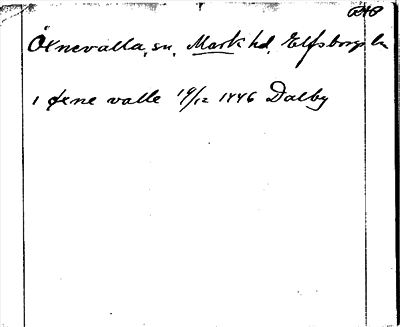 Öxnevalla, sn, Mark hd, Elfsborgs län
1 øxne valle 19/12 1446 Dalby